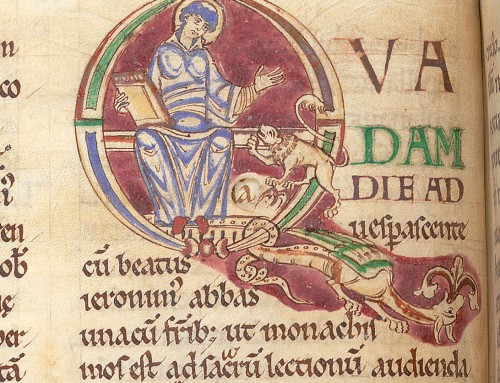 co
en
ob
per
tā
Q VA
DAM
DIE AD
uesꝑascente
cū beatus
ieronimꝰ abbas
unacū frib; ut monachis
mos est ad sacrū lectionū audienda